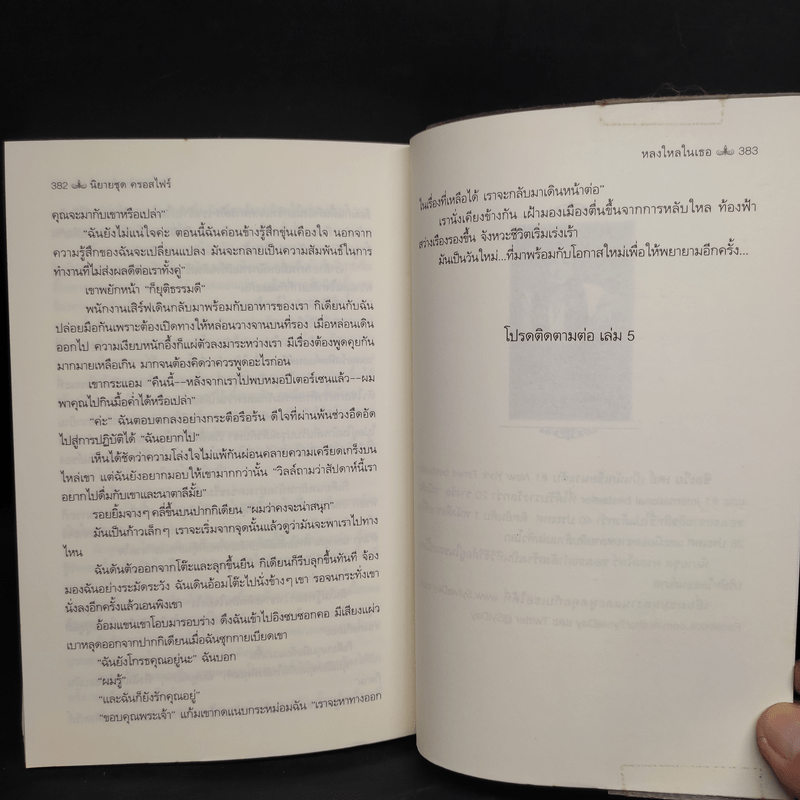 382 นิยายชุด ครอสไฟร์
คุณจะมากับเขาหรือเปล่า"
"ฉันยังไม่แน่ใจค่ะ ตอนนี้ฉันค่อนข้างรู้สึกขุ่นเคืองใจ นอกจาก
ความรู้สึกของฉันจะเปลี่ยนแปลง มันจะกลายเป็นความสัมพันธ์ในการ
ทำงานที่ไม่ส่งผลดีต่อเราทั้งคู่"
เขาพยักหน้า "ก็ยุติธรรมดี"
พนักงานเสิร์ฟเดินกลับมาพร้อมกับอาหารของเรา กิเดียนกับฉัน
ปล่อยมือกันเพราะต้องเปิดทางให้หล่อนวางจานบนที่รอง เมื่อหล่อนเดิน
ออกไป ความเงียบหนักอึ้งก็แผ่ตัวลงมาระหว่างเรา มีเรื่องต้องพูดคุยกัน
มากมายเหลือเกิน มากจนต้องคิดว่าควรพูดอะไรก่อน
เขากระแอม "คืนนี้--หลังจากเราไปพบหมอปีเตอร์เซนแล้ว--ผม
พาคุณไปกินมื้อค่ำได้หรือเปล่า"
"ค่ะ" ฉันตอบตกลงอย่างกระตือรือร้น ดีใจที่ผ่านพ้นช่วงอึดอัด
ไปสู่การปฏิบัติได้ "ฉันอยากไป"
เห็นได้ชัดว่าความโล่งใจไม่แพ้กันผ่อนคลายความเครียดเกร็งบน
ไหล่เขา แต่ฉันยังอยากมอบให้เขามากกว่านั้น "วิลล์ถามว่าสัปดาห์นี้เรา
อยากไปดื่มกับเขาและนาตาลีมั้ย"
รอยยิ้มจางๆ คลี่ขึ้นบนปากกิเดียน "ผมว่าคงจะน่าสนุก"
มันเป็นก้าวเล็กๆ เราจะเริ่มจากจุดนั้นแล้วดูว่ามันจะพาเราไปทาง
ไหน
ฉันดันตัวออกจากโต๊ะและลุกขึ้นยืน กิเดียนก็รีบลุกขึ้นทันที จ้อง
มองฉันอย่างระมัดระวัง ฉันเดินอ้อมโต๊ะไปนั่งข้างๆ เขา รอจนกระทั่งเขา
นั่งลงอีกครั้งแล้วเอนพิงเขา
อ้อมแขนเขาโอบมารอบร่าง ดึงฉันเข้าไปอิงซบซอกคอ มีเสียงแผ่ว
เบาหลุดออกจากปากกิเดียนเมื่อฉันซุกกายเบียดเขา
"ฉันยังโกรธคุณอยู่นะ" ฉันบอก
"ผมรู้"
"และฉันก็ยังรักคุณอยู่"
"ขอบคุณพระเจ้า" แก้มเขากดแนบกระหม่อมฉัน "เราจะหาทางออก
หลงใหลในเธอ 383
ในเรื่องที่เหลือได้ เราจะกลับมาเดินหน้าต่อ"
เรานั่งเคียงข้างกัน เฝ้ามองเมืองตื่นขึ้นจากการหลับใหล ท้องฟ้า
สว่างเรืองรองขึ้น จังหวะชีวิตเริ่มเร่งเร้า
มันเป็นวันใหม่...ที่มาพร้อมกับโอกาสใหม่เพื่อให้พยายามอีกครั้ง...
โปรดติดตามต่อ เล่ม 5